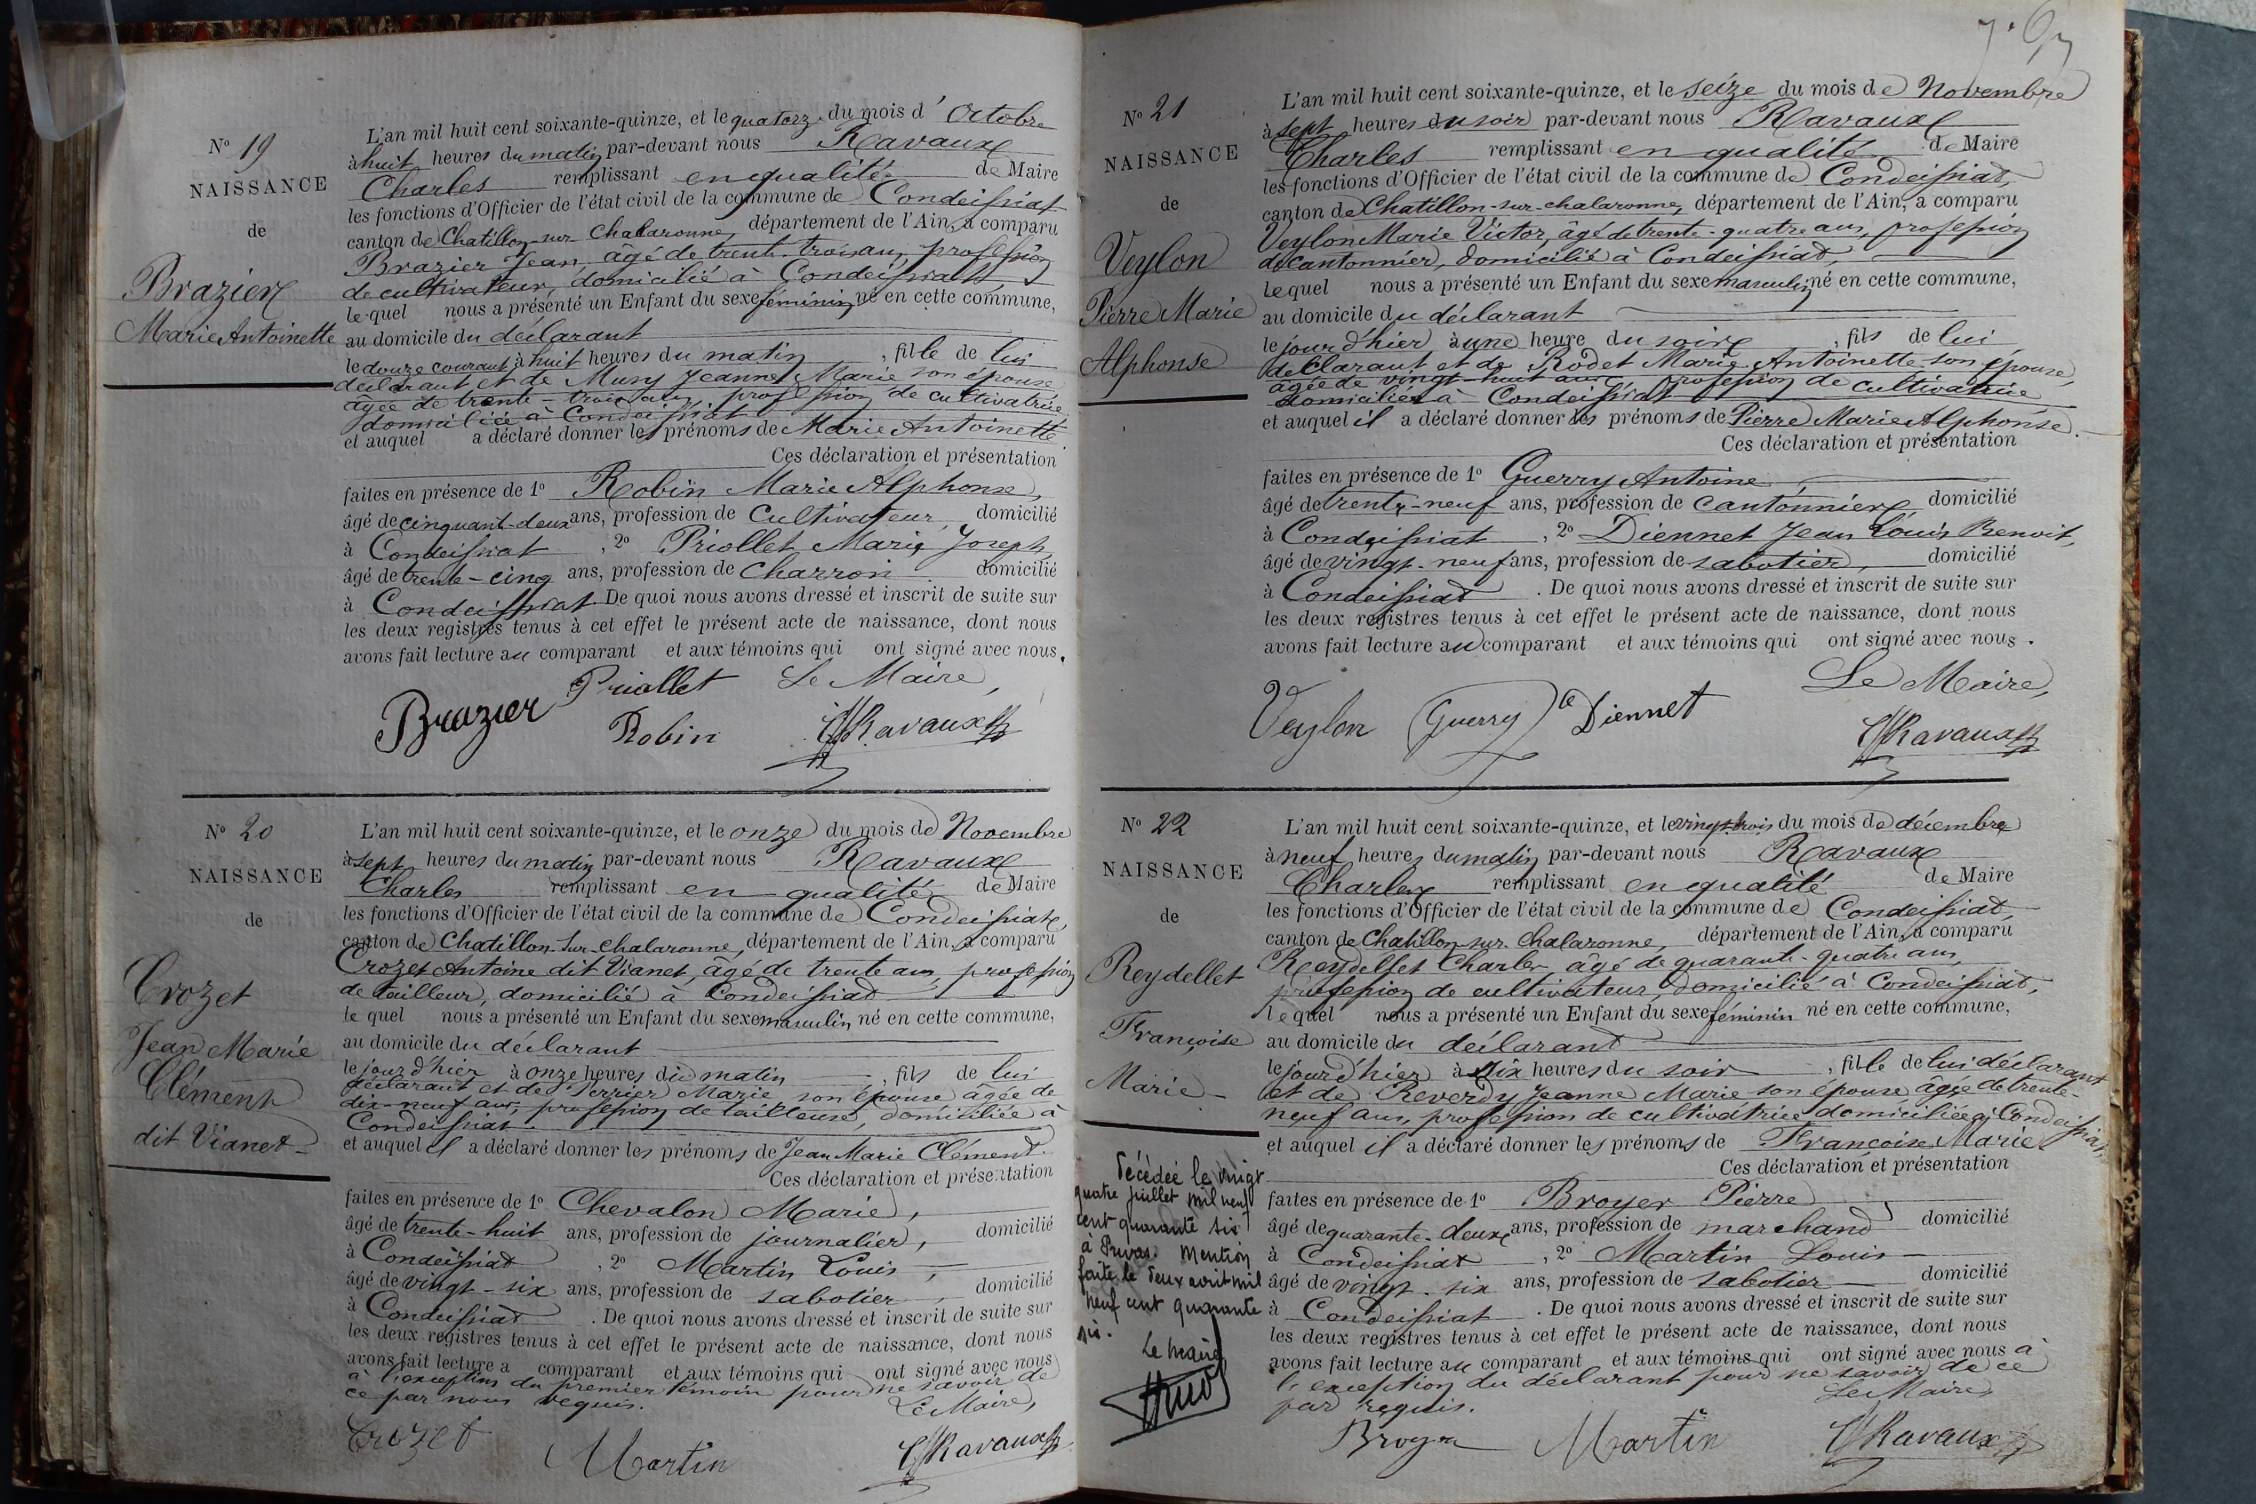 Nº 19
NAISSANCE
de
Brazier
Marie Antoinette
L'an mil huit cent soixante-quinze, et le quatorze du mois d'Octobre
à huit heures du matin par-devant nous Ravaux
Charles remplissant en qualité de Maire
les fonctions d'Officier de l'état civil de la commune de Condeissiat
canton de Chatillon-sur-Chalaronne, département de l'Ain, a comparu
Brazier Jean âgé de trente-trois ans, profession
de cultivateur, domicilié à Condeissiat,
lequel nous a présenté un Enfant du sexe féminin né en cette commune,
au domicile du déclarant
le douze courant à huit heures du matin, fille de lui
déclarant et de Mury Jeanne Marie son épouse
âgée de trente-trois ans, profession de cultivatrice
domiciliée à Condeissiat
et auquel a déclaré donner les prénoms de Marie Antoinette
Ces déclaration et présentation
faites en présence de 1º Robin Marie Alphonse,
âgé de cinquant-deux ans, profession de Cultivateur, domicilié
à Condeissiat, 2º Priollet Marie Joseph,
âgé de trente-cinq ans, profession de charron domicilié
à Condeissiat. De quoi nous avons dressé et inscrit de suite sur
les deux registres tenus à cet effet le présent acte de naissance, dont nous
avons fait lecture au comparant et aux témoins qui ont signé avec nous.
Brazier Priollet Le Maire,
Robin Ravaux
Nº 20
NAISSANCE
de
Crozet
Jean Marie
Clément
dit Vianet
L'an mil huit cent soixante-quinze, et le onze du mois de Novembre
à sept heures du matin par-devant nous Ravaux
Charles remplissant en qualité de Maire
les fonctions d'Officier de l'état civil de la commune de Condeissiat,
canton de Chatillon-sur-Chalaronne, département de l'Ain, a comparu
Crozet Antoine dit Vianet, âgé de trente ans, profession
de tailleur, domicilié à Condeissiat
lequel nous a présenté un Enfant du sexe masculin né en cette commune,
au domicile du déclarant
le jour d'hier à onze heures du matin, fils de lui
déclarant et de Perrier Marie son épouse âgée de
dix-neuf ans, profession de tailleuse, domiciliée à
Condeissiat.
et auquel il a déclaré donner les prénoms de Jean Marie Clément.
Ces déclaration et présentation
faites en présence de 1º Chevalon Marie,
âgé de trente-huit ans, profession de journalier, domicilié
à Condeissiat, 2º Martin Louis,
âgé de vingt-six ans, profession de sabotier, domicilié
à Condeissiat. De quoi nous avons dressé et inscrit de suite sur
les deux registres tenus à cet effet le présent acte de naissance, dont nous
avons fait lecture a comparant et aux témoins qui ont signé avec nous
à l'exception du premier témoin pour ne savoir de
ce par nous requis. Le Maire,
Crozet Martin Ravaux
Nº 21
NAISSANCE
de
Veylon
Pierre Marie
Alphonse
L'an mil huit cent soixante-quinze, et le seize du mois de Novembre
à sept heures du soir par-devant nous Ravaux
Charles remplissant en qualité de Maire
les fonctions d'Officier de l'état civil de la commune de Condeissiat,
canton de Chatillon-sur-chalaronne, département de l'Ain, a comparu
Veylon Marie Victor, âgé de trente-quatre ans, profession
de cantonnier, domicilié à Condeissiat,
lequel nous a présenté un Enfant du sexe masculin né en cette commune,
au domicile du déclarant
le jour d'hier à une heure du soir, fils de lui
déclarant et de Rodet Marie Antoinette son épouse,
âgée de vingt-huit ans profession de cultivatrice
domiciliée à Condeissiat
et auquel il a déclaré donner les prénoms de Pierre Marie Alphonse.
Ces déclaration et présentation
faites en présence de 1º Guerry Antoine,
âgé de trente-neuf ans, profession de cantonnier, domicilié
à Condeissiat, 2º Diennet Jean Louis Benoit,
âgé de vingt-neuf ans, profession de sabotier, domicilié
à Condeissiat. De quoi nous avons dressé et inscrit de suite sur
les deux registres tenus à cet effet le présent acte de naissance, dont nous
avons fait lecture au comparant et aux témoins qui ont signé avec nous.
Le Maire,
Veylon Guerry Diennet Ravaux
Nº 22
NAISSANCE
de
Reydellet
Françoise
Marie
L'an mil huit cent soixante-quinze, et le vingt-trois du mois de décembre
à neuf heures du matin par-devant nous Ravaux
Charles remplissant en qualité de Maire
les fonctions d'Officier de l'état civil de la commune de Condeissiat,
canton de Chatillon-sur-Chalaronne, département de l'Ain, a comparu
Reydellet Charles, âgé de quarante-quatre ans,
profession de cultivateur, domicilié à Condeissiat,
lequel nous a présenté un Enfant du sexe féminin né en cette commune,
au domicile du déclarant
le jour d'hier à heures du soir, fille de lui déclarant
et de Reverdy Jeanne Marie son épouse âgée de trente-
neuf ans, profession de cultivatrice domiciliée à Condeissiat
et auquel il a déclaré donner les prénoms de Françoise Marie
Ces déclaration et présentation
faites en présence de 1º Broyer Pierre,
âgé de quarante-deux ans, profession de marchand domicilié
à Condeissiat, 2º Martin Louis
âgé de vingt-six ans, profession de sabotier domicilié
à Condeissiat. De quoi nous avons dressé et inscrit de suite sur
les deux registres tenus à cet effet le présent acte de naissance, dont nous
avons fait lecture au comparant et aux témoins qui ont signé avec nous à
l'exception du déclarant pour ne savoir de ce
par requis. Le Maire,
Broyer Martin Ravaux
Décédée le vingt
quatre juillet mil neuf
cent quarante six
à Privas. Mention
faite le deux août mil
neuf cent quarante
six.
Le maire